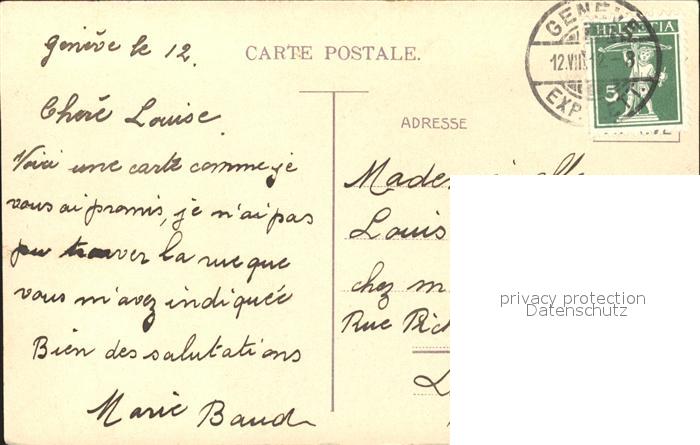 Genève le 12.
CARTE POSTALE.
GENÈVE
12.VIII.12.-8
EXP. LETT.
HELVETIA
5
Cheré Louise
ADRESSE
Voici une carte comme je
vous ai promis, je n'ai pas
pu trouver la rue que
vous m'avez indiquée
Bien des salutations
Marie Baud
Louis
chez m
Rue
privacy protection
Datenschutz